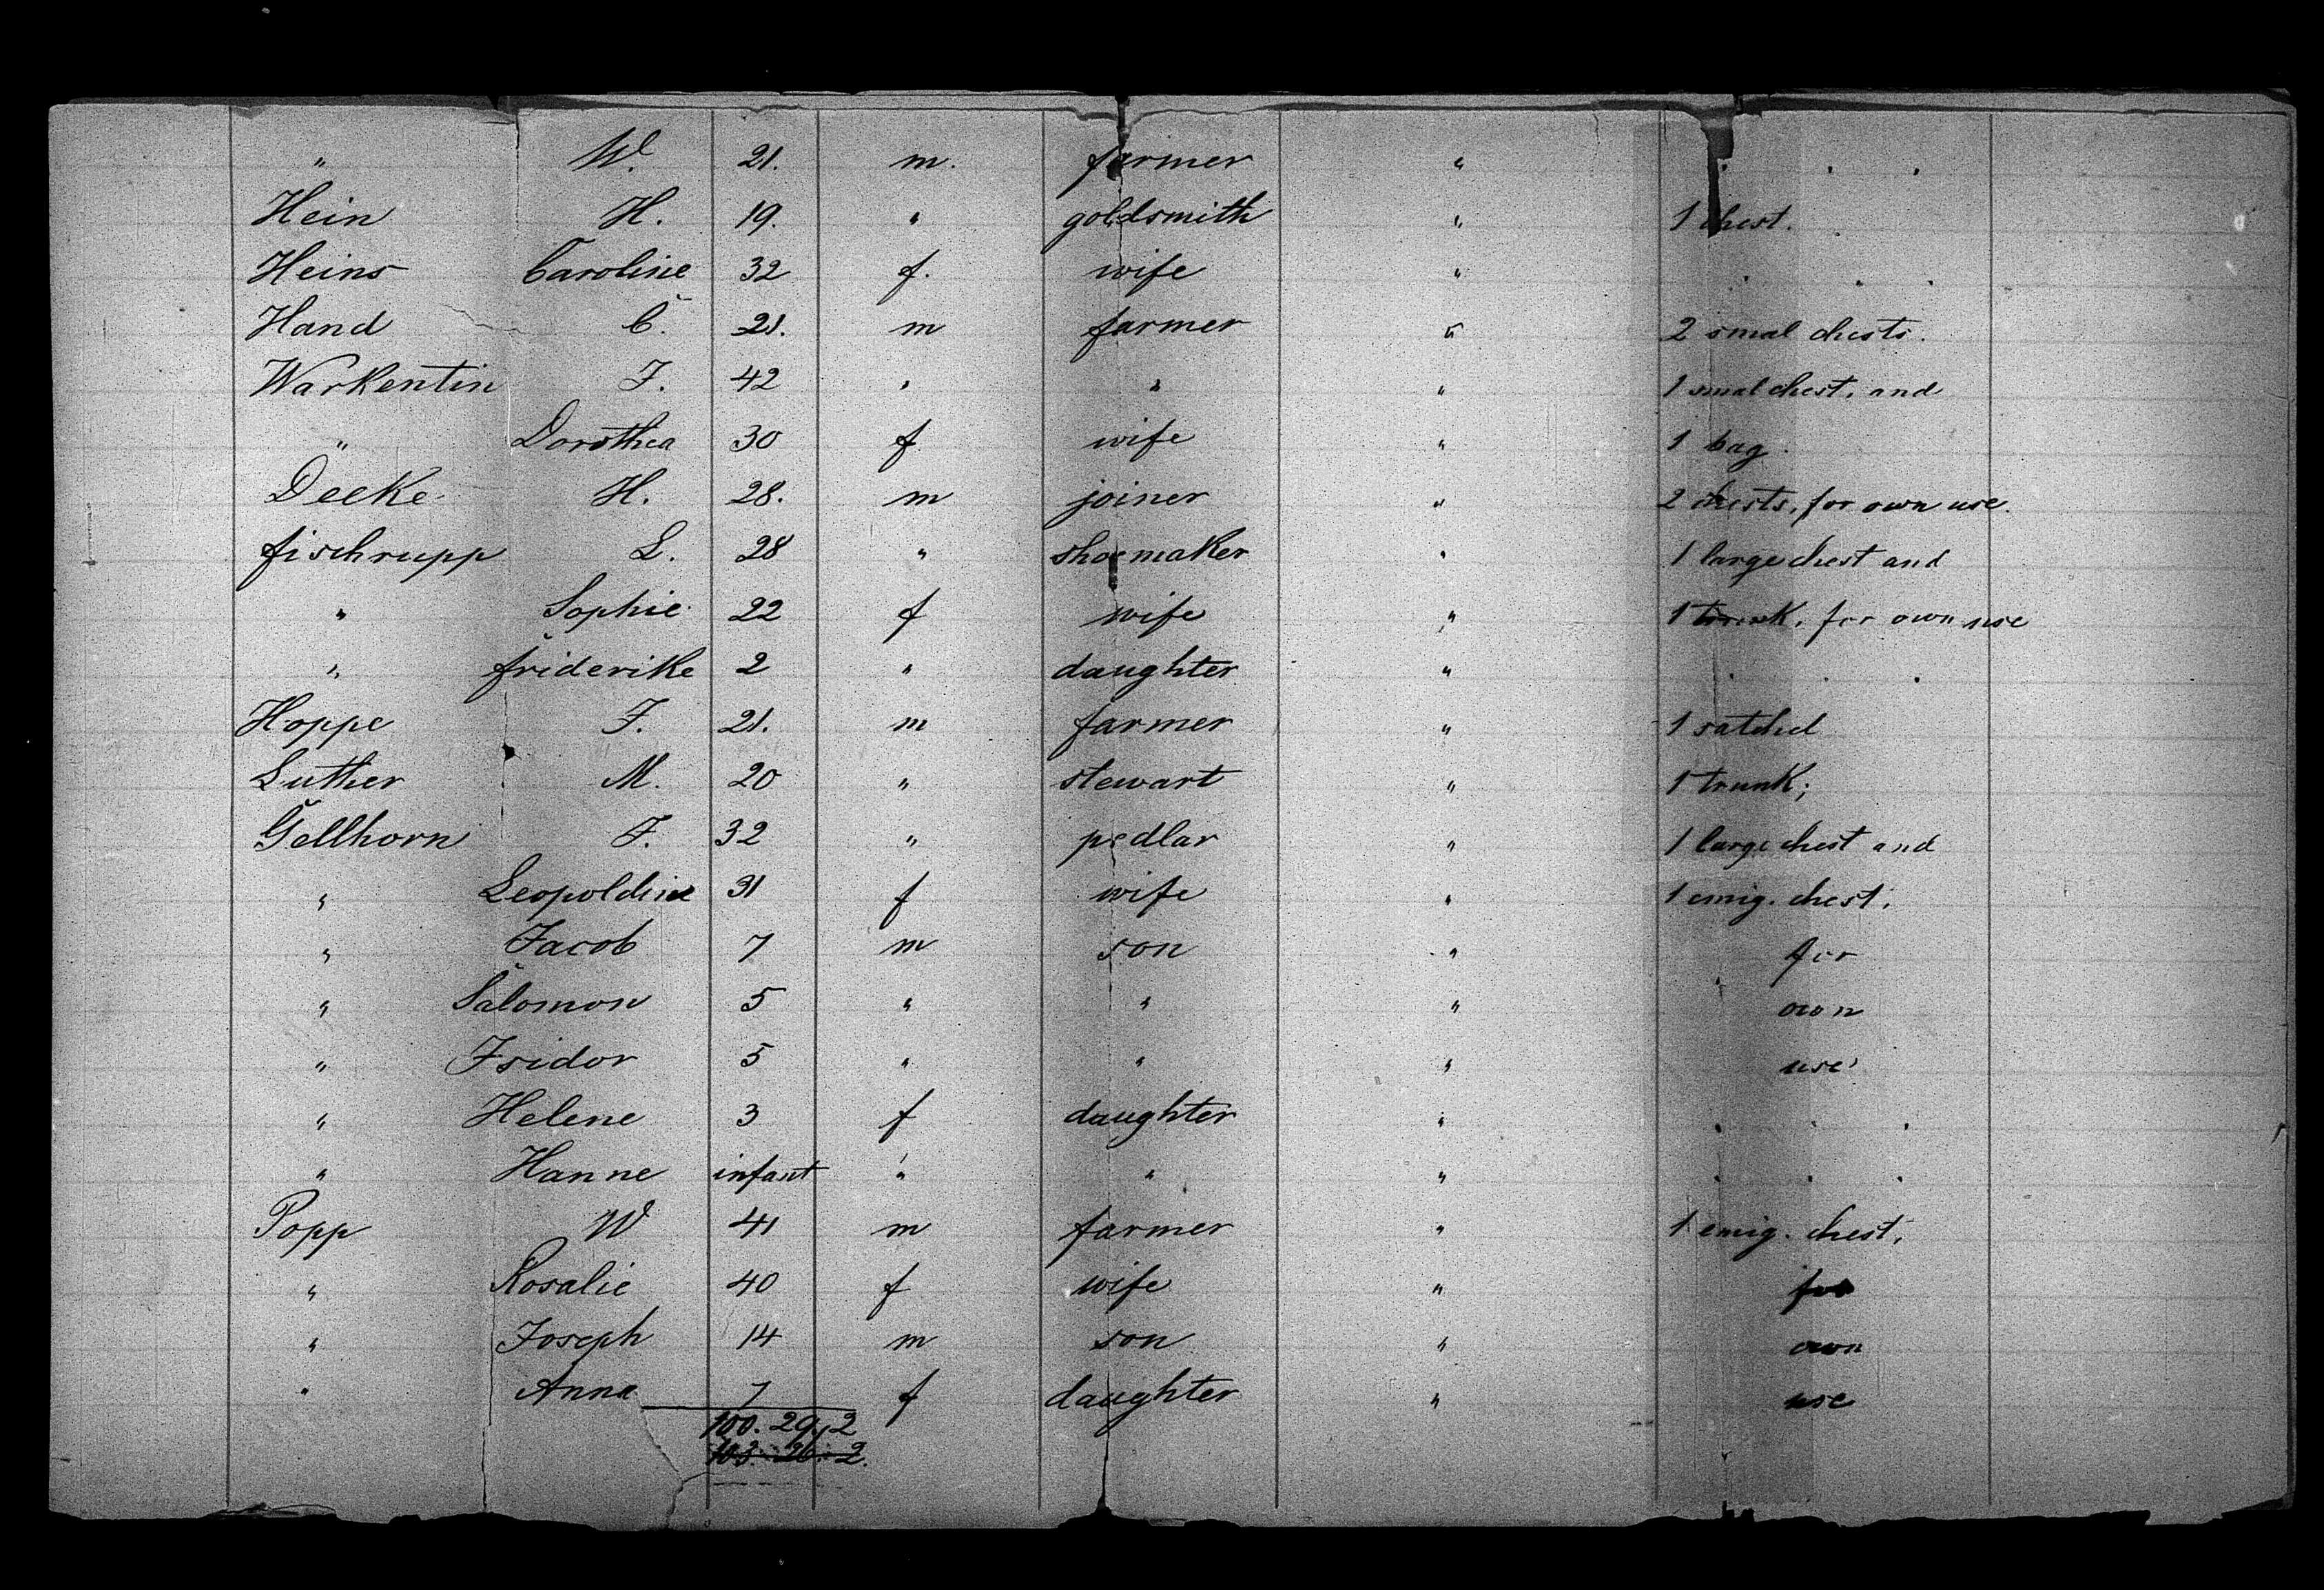 " W. 21. m. farmer " . . .
Hein H. 19. " goldsmith " 1 chest. .
Heins Caroline 32 f. wife " . . .
Hand C. 21. m farmer " 2 smal chests.
Warkentin J. 42 " " " 1 smal chest, and
" Dorothea 30 f wife " 1 bag.
Deeke H. 28. m joiner " 2 chests, for own use.
fischrupp L. 28 " shoemaker " 1 large chest and
" Sophie 22 f wife " 1 trunk, for own use
" friderike 2 " daughter " . . .
Hoppe J. 21. m farmer " 1 satchel
Luther M. 20 " stewart " 1 trunk;
Gellhorn J. 32 " pedlar " 1 large chest and
" Leopoldine 31 f wife " 1 emig. chest,
" Jacob 7 m son " for
" Salomon 5 " " " own
" Isidor 5 " " " use
" Helene 3 f daughter " . . .
" Hanne infant " " " . . .
Popp W 41 m farmer " 1 emig. chest,
" Rosalie 40 f wife " for
" Joseph 14 m son " own
" Anna 7 f daughter " use
100. 29, 2
103. 26. 2.